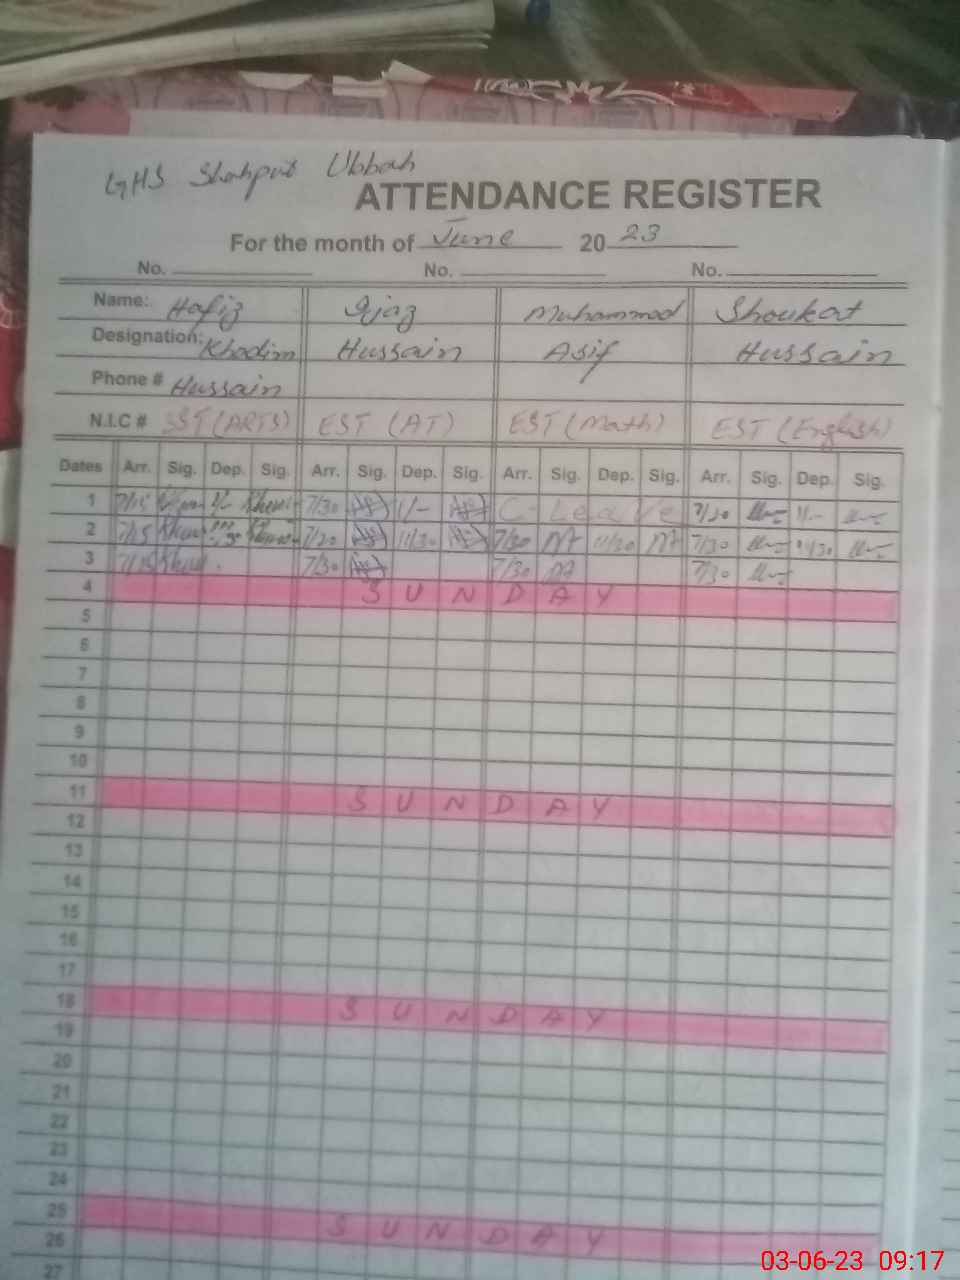 GHS Shahpur Ubbah
ATTENDANCE REGISTER
For the month of June 2023
No. No. No.
Name: Hafiz Ijaz Muhammad Shoukat
Designation: Khadim Hussain Asif Hussain
Phone # Hussain
N.I.C # SST (ARTS) EST (AT) EST (Math) EST (English)
Dates Arr. Sig. Dep. Sig. Arr. Sig. Dep. Sig. Arr. Sig. Dep. Sig. Arr. Sig. Dep. Sig.
1 7/15 1/- 7/30 1/- C- Leave 7/30 1/-
2 7/15 7/30 11/30 7/30 11/30 7/30 11/30
3 7/15 7/30 7/30 7/30
4 SUNDAY
5
6
7
8
9
10
11 SUNDAY
12
13
14
15
16
17
18 SUNDAY
19
20
21
22
23
24
25 SUNDAY
26
27
03-06-23 09:17